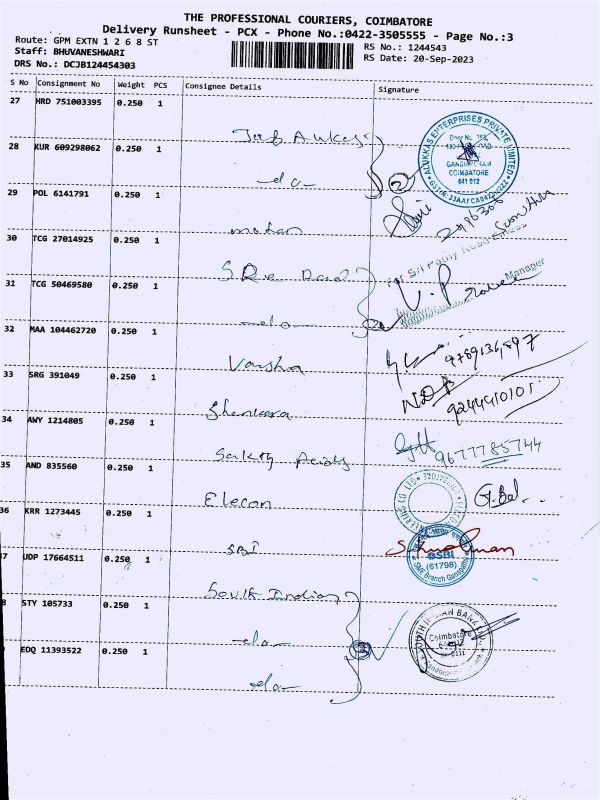 THE PROFESSIONAL COURIERS, COIMBATORE
Delivery Runsheet - PCX - Phone No.:0422-3505555 - Page No.:3
Route: GPM EXTN 1 2 6 8 ST
RS No.: 1244543
Staff: BHUVANESHWARI
RS Date: 20-Sep-2023
DRS No.: DCJB124454303
S No Consignment No Weight PCS Consignee Details Signature
27 HRD 751003395 0.250 1
28 KUR 609298062 0.250 1 -do-
ALUKKAS ENTERPRISES PRIVATE LIMITED
COIMBATORE
641 012
29 POL 6141791 0.250 1 mohan
30 TCG 27014925 0.250 1
31 TCG 50469580 0.250 1 -do-
Manager
32 MAA 104462720 0.250 1 Varsha
33 SRG 391049 0.250 1 Shenkara
9244410101
34 AWY 1214805 0.250 1 Sakthy
9677785744
35 AND 835560 0.250 1 Elecon
36 KRR 1273445 0.250 1 SBI
SBI
(61798)
SME Branch Ganapathy
37 UDP 17664511 0.250 1 South Indian
STY 105733 0.250 1 -do-
SOUTH INDIAN BANK
Coimbatore
EDQ 11393522 0.250 1 -do-